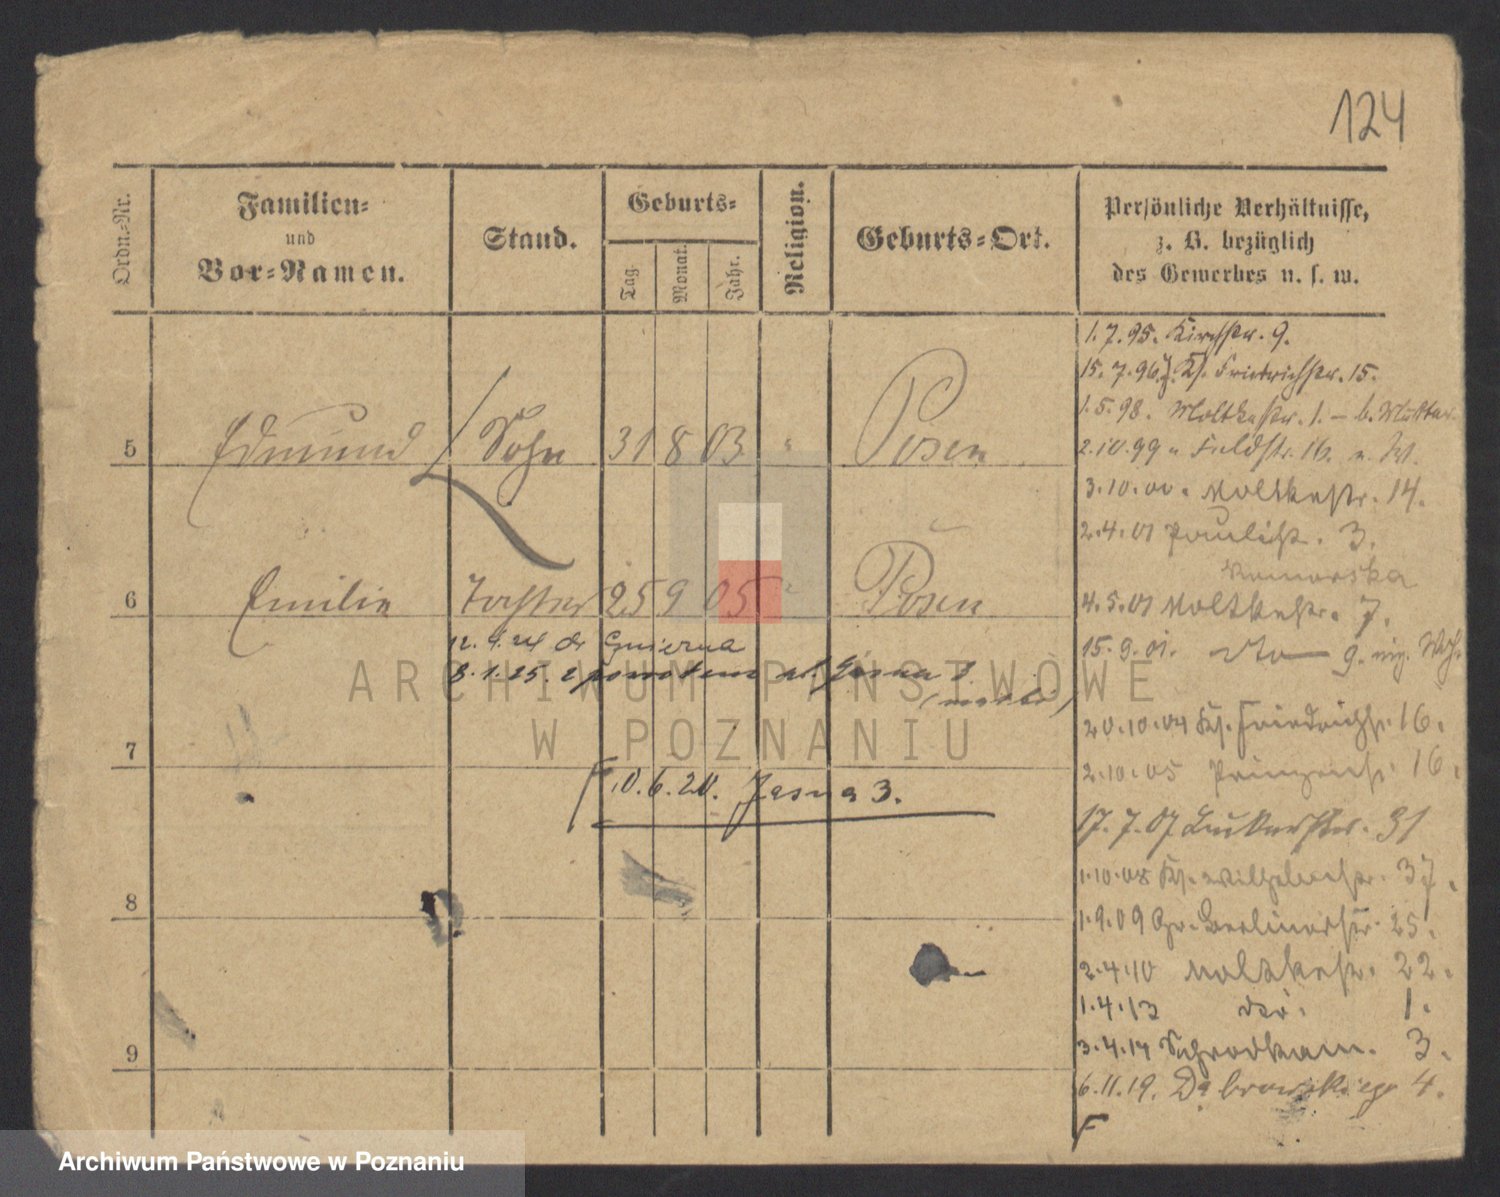 124
Ordn.-Nr.
Familien-
und
Vor-Namen.
Stand.
Geburts-
Tag.
Monat.
Jahr.
Religion.
Geburts-Ort.
Persönliche Verhältnisse,
z. B. bezüglich
des Gewerbes u. s. w.
1.7.95. Kirchstr. 9.
15.7.96. Kl. Friedrichstr. 15.
1.5.98. Moltkestr. 1. – b. Mutter
5 Edmund Sohn 31 8 03 " Posen
2.10.99 Feldstr. 16.
3.10.00. Moltkestr. 14.
2.4.01 Paulist. 3.
Pomorska
6 Emilie Tochter 25 9 05 " Posen
4.5.01 Moltkestr. 7.
12.9.24 do Gniezna
15.9.01. dto 9.
8.1.25. z powrotem ul. Jasna 3.
20.10.04 Kl. Friedrichstr. 16.
7
2.10.05 Prinzenstr. 16.
F 10.6.20. Jasna 3.
17.7.07 31
1.10.08 Kl. Wilhelmstr. 37.
8
1.9.09 Gr. Berlinerstr. 25.
2.4.10 Moltkestr. 22.
1.4.13 1.
9
3.4.14 Schrodkam. 3.
6.11.19. Dąbrowskiego 4.
F
ARCHIWUM PAŃSTWOWE
W POZNANIU
Archiwum Państwowe w Poznaniu